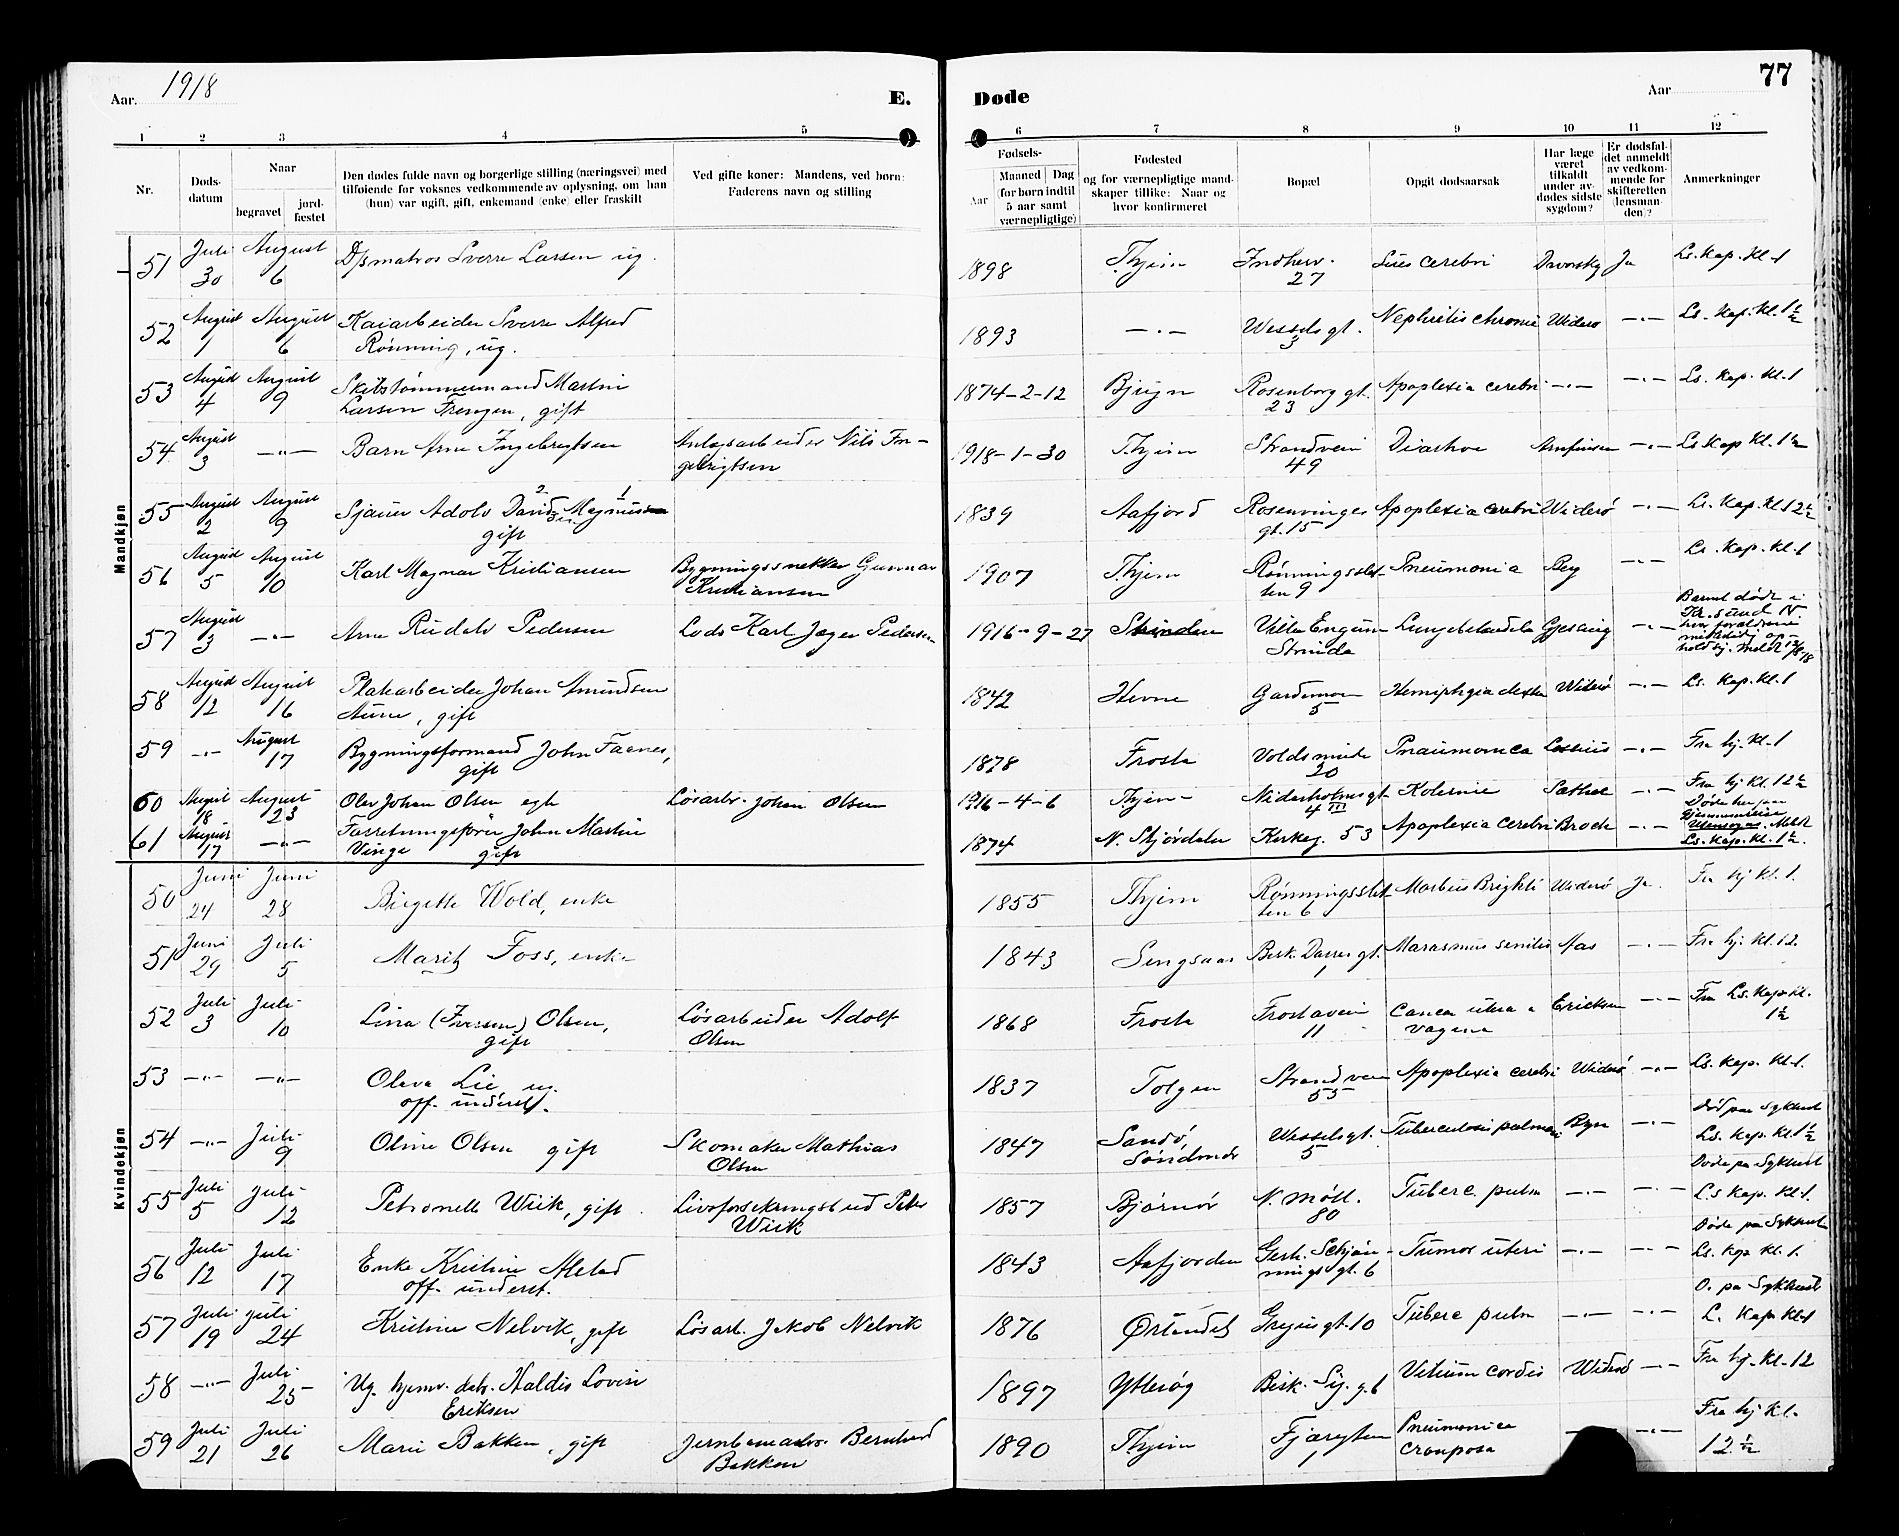 Aar. 1918 E. Døde Aar 77
1 2 3 4 5 6 7 8 9 10 11 12
Nr.
Døds-
datum
Naar
begravet
jord-
fæstet
Den dødes fulde navn og borgerlige stilling (næringsvei) med
tilføiende for voksnes vedkommende av oplysning, om han
(hun) var ugift, gift, enkemand (enke) eller fraskilt
Ved gifte koner: Mandens, ved børn:
Faderens navn og stilling
Fødsels-
Aar
Maaned Dag
(for børn indtil
5 aar samt
værnepligtige)
Fødested
og for værnepligtige mand-
skaper tillike: Naar og
hvor konfirmeret
Bopæl
Opgit dødsaarsak
Har læge
været
tilkaldt
under av-
dødes sidste
sygdom?
Er dødsfal-
det anmeldt
av vedkom-
mende for
skifteretten
(lensman-
den)?
Anmerkninger
Mandkjøn
51 Juli 30 August 6 D/s matros Sverre Larsen ug. 1898 Thjem Indherr. 27 Lues cerebri Ja Ls. Kap. Kl. 1
52 August 1 August 6 Kaiarbeider Sverre Alfred
Rønning, ug. 1893 —„— Wessels gt. 3 Nephritis chronic Widerø —„— Ls. Kap. Kl. 1 1/2
53 August 4 August 9 Skibstømmermand Martin
Larsen Frengen, gift 1874-2-12 Bjugn Rosenborg gt. 23 Apoplexia cerebri —„— —„— Ls. Kap. Kl. 1
54 August 3 —„— Barn Arne Ingebrigtsen Anlægsarbeider Nils In-
gebrigtsen 1918-1-30 Thjem Strandvein 49 Diarrhoe Arnfinsen —„— Ls Kap Kl. 1 1/2
55 August 2 August 9 Sjauer Adolv David 2 Magnussen 1
gift 1839 Aafjord Rosenvinges
gt. 15 Apoplexia cerebri Widerø —„— Ls. Kap. Kl 12 1/2
56 August 5 August 10 Karl Magnar Kristiansen Bygningssnekker Gunnar
Kristiansen 1907 Thjem Rønningsslet-
ten 9 Pneumonia —„— Ls. Kap. Kl. 1
57 August 3 —„— Arne Rudolv Pedersen Lods Karl Jæger Pedersen 1916-9-27 Strinden Villa Engum
Strinda Lungebetændelse Gjessing —„— Barnet døde i
Kr. sund N
hvor forældrene
midlertidig op-
holdt sig. Meldt
58 August 12 August 16 Platearbeider Johan Amundsen
Aune, gift 1842 Hevne Gardemoen 5 Hemiplegia dextra Widerø —„— Ls. Kap. Kl. 1
59 —„— August 17 Bygningsformand John Faanes,
gift 1878 Frosta Voldsminde 20 Pneumonica —„— Fra hj. Kl. 1
60 August 18 August 23 Olav Johan Olsen egte Løsarb. Johan Olsen 1916-4-6 Thjem Nidarholms gt.
4 III Kolerine Sæther —„— Fra hj Kl. 12 1/2
61 August 17 —„— Forretningsfører John Martin
Vinge gift 1874 N. Stjørdalen Kirkeg. 53 Apoplexia Cerebri Broch —„— Ls. Kap. Kl. 1 1/2.
Kvindekjøn
50 Juni 24 Juni 28 Birgitte Wold, enke 1855 Thjem Rønningsslet-
ten 6 Morbus Brighti Widerø Ja. Fra hj Kl. 1.
51 Juni 29 Juli 5 Marit Foss, enke 1843 Singsaas Bisk. Darres gt. 1 Marasmus senilis Aas —„— Fra hj. Kl. 12.
52 Juli 3 Juli 10 Lina (Iversen) Olsen,
gift Løsarbeider Adolf
Olsen 1868 Frosta Frostavein 11 Cancer uteri &
vagina Ericksen —„— Fra Ls. Kap. Kl.
1 1/2
53 —„— —„— Oleva Lie ug.
off. underst. 1837 Tolgen Strandvein 55 Apoplexia cerebri Widerø —„— Ls. Kap. Kl. 1.
54 —„— Juli 9 Oline Olsen gift Skomaker Mathias
Olsen 1847 Sandø,
Søndmør Wessels gt. 5 Tuberculosis pulmon —„— Død paa Sykhust
Ls. Kap. Kl. 1 1/2
55 Juli 5 Juli 12 Petronelle Wiik, gift Livsforsikringsbud Peter
Wiik 1857 Bjørnør N. Møll. 80 Tuberc. pulm —„— —„— Døde pa Sykhust
Ls Kap. Kl. 1.
56 Juli 12 Juli 17 Enke Kristine Alstad
off. underst. 1843 Aafjorden Gerh. Schjøn-
nings gt. 6 Tumor uteri —„— —„— Døde pa Sykhust
Ls. Kap Kl. 1.
57 Juli 19 Juli 24 Kristine Nelvik, gift Løsarb. Jakob Nelvik 1876 Ørlandet gt. 10 Tuberc pulm —„— —„— D. pa Sykhust
L. Kap Kl 1
58 —„— Juli 25 Ug. hjemv. datr. Haldis Lovise
Eriksen 1897 Ytterøy Bisk. Sig. g. 6 Vitium cordis Widerø —„— Fra hj. Kl. 12
59 Juli 21 Juli 26 Marie Bakken, gift Bernhard
Bakken 1890 Thjem Pneumonica
crouposa —„— —„— Fra hj Kl.
12 1/2